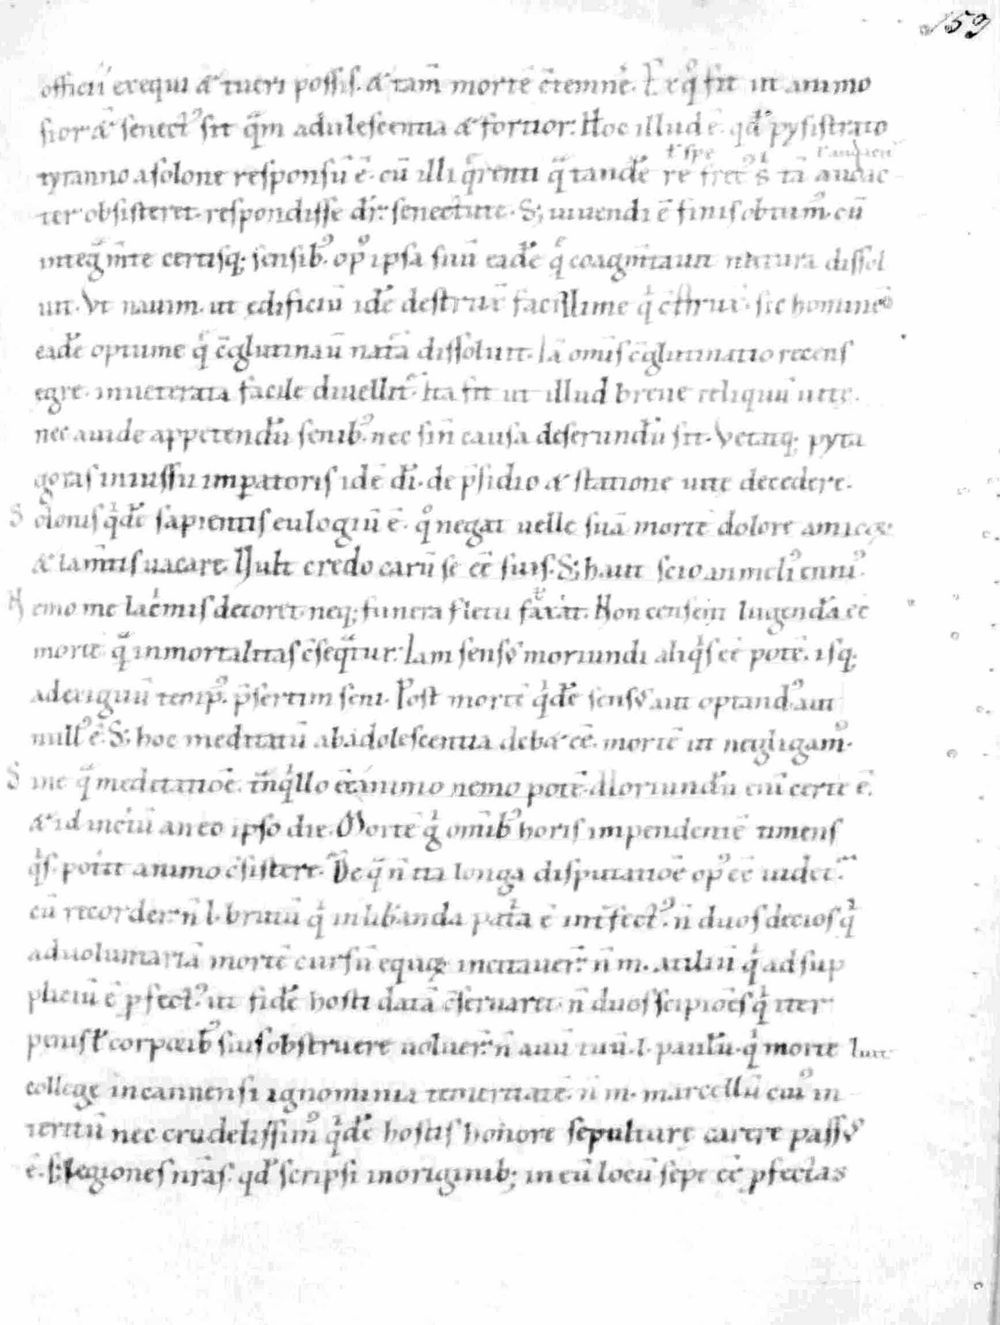 159
officii exequi & tueri possis. & tam̅ morte̅ c̅temne̅. Ex q° fit ut animo
sior & senect᷒ sit q̅m adulescentia & fortior. Hoc illud e̅. qd̅ pysistrato
ł spe ł audaci
tyranno asolone responsu̅ e̅. cu̅ illi q̅renti q̅ tande̅ re fret᷒ s̅ ta̅ audac
ter obsisteret. respondisse dr̅: senectute. S; uiuendi e̅ finis obtum᷒. cu̅
integ̅ m̅te certisq; sensib᷒. op᷒ ipsa suu̅ eade̅ q̅ coagm̅tauit natura dissol
uit. Vt nauim. ut edificiu̅ ide̅ destruit facillime q̅ c̅struxit. sic homine̅
eade̅ optume q̅ c̅glutinau̅ nat̅a dissoluit. Ia̅ omis c̅glutinatio recens
egre. inueterata facile diuellit̅. Ita fit ut illud breue reliquu̅ uite.
nec auide appetendu̅ senib᷒. nec sin̅ causa deserundu̅ sit. Vetatq; pyta
goras iniussu imperatoris ide̅ di̅. de p̅sidio & statione uite decedere.
Solonis q̅de̅ sapientis eulogiu̅ e̅. q° negat uelle sua̅ morte̅ dolore amicoꝝ
& lam̅tis uacare. Uult credo caru̅ se ee̅ suis. S; haut scio an meli᷒ enni᷒.
Nemo me lac̅mis decoret. neq; funera fletu faxit. Non censem lugenda̅ ee̅
morte̅ q̅ inmortalitas c̅seq̅tur. Iam sens᷒ moriundi aliq̅s ee̅ pote̅. isq;
ad exiguu̅ temp᷒. p̅sertim seni. Post morte̅ q̅de̅ sens᷒ aut optand᷒ aut
null᷒ e̅. S; hoc meditatu̅ ab adolescentia deb& ee̅. morte̅ ut negligam᷒.
Sine q̅ meditatioe̅. t̅nq̅llo ee̅ animo nemo pote̅. Moriundu̅ eni̅ certe e̅.
& id inc̅tu̅ an eo ipso die. Morte̅ g̅ omib᷒ horis impendente̅ timens
q̅s. pot̅it animo c̅sistere. De q̅ n̅ ita longa disputatioe̅ op᷒ ee̅ uidet̅.
cu̅ recorder: n̅ l. brutu̅ q̅ in lib̅anda pat̅a e̅ int̅fect᷒. n̅ duos decios q̅
ad uoluntaria̅ morte̅ cursu̅ equoꝝ incitauer̅. n̅ m. atiliu̅ q̅ ad sup
pliciu̅ e̅ pfect᷒. ut fide̅ hosti data̅ c̅seruaret. n̅ duos scipioe̅s q̅ iter
penisł corporib᷒ suis obstruere uoluer̅. n̅ auu̅ tuu̅. l. paulu̅. q̅ morte luit
college in cannensi ignominia temeritate̅. n̅ m. marcellu̅ cui᷒ in
teritu̅ nec crudelissim᷒ q̅de̅ hostis honore sepulture carere pass᷒
e̅. S; legiones nr̅as. qd̅ scripsi in originib; in eu̅ locu̅ sepe ee̅ pfectas